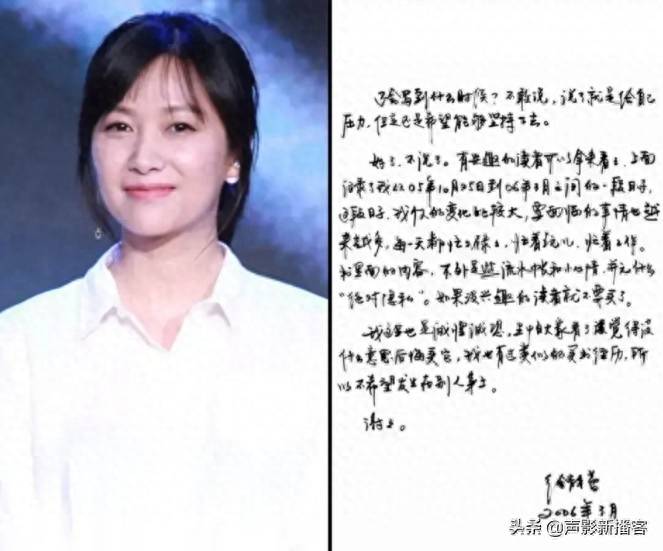 还会写到什么时候？不敢说，说了就是给自己
压力，但是还是希望能够坚持下去。
好了，不说了。有兴趣的读者可以拿来看了，上面
记录了我2005年10月25日到06年3月之间的一段日子，
这段日子，我们的变化比较大，要面临的事情也越
来越多，每一天都忙忙碌碌，忙着玩儿，忙着工作。
书里面的内容，不外是些流水帐和小心情，并无什么
“绝对隐私”。如果没兴趣的读者就不要买了。
我这里也是诚惶诚恐，
什么意思后悔买它，我也有过类似的买书经历，所
以不希望发生在别人身上。
谢谢。
2006年3月
头条 @声影新播客